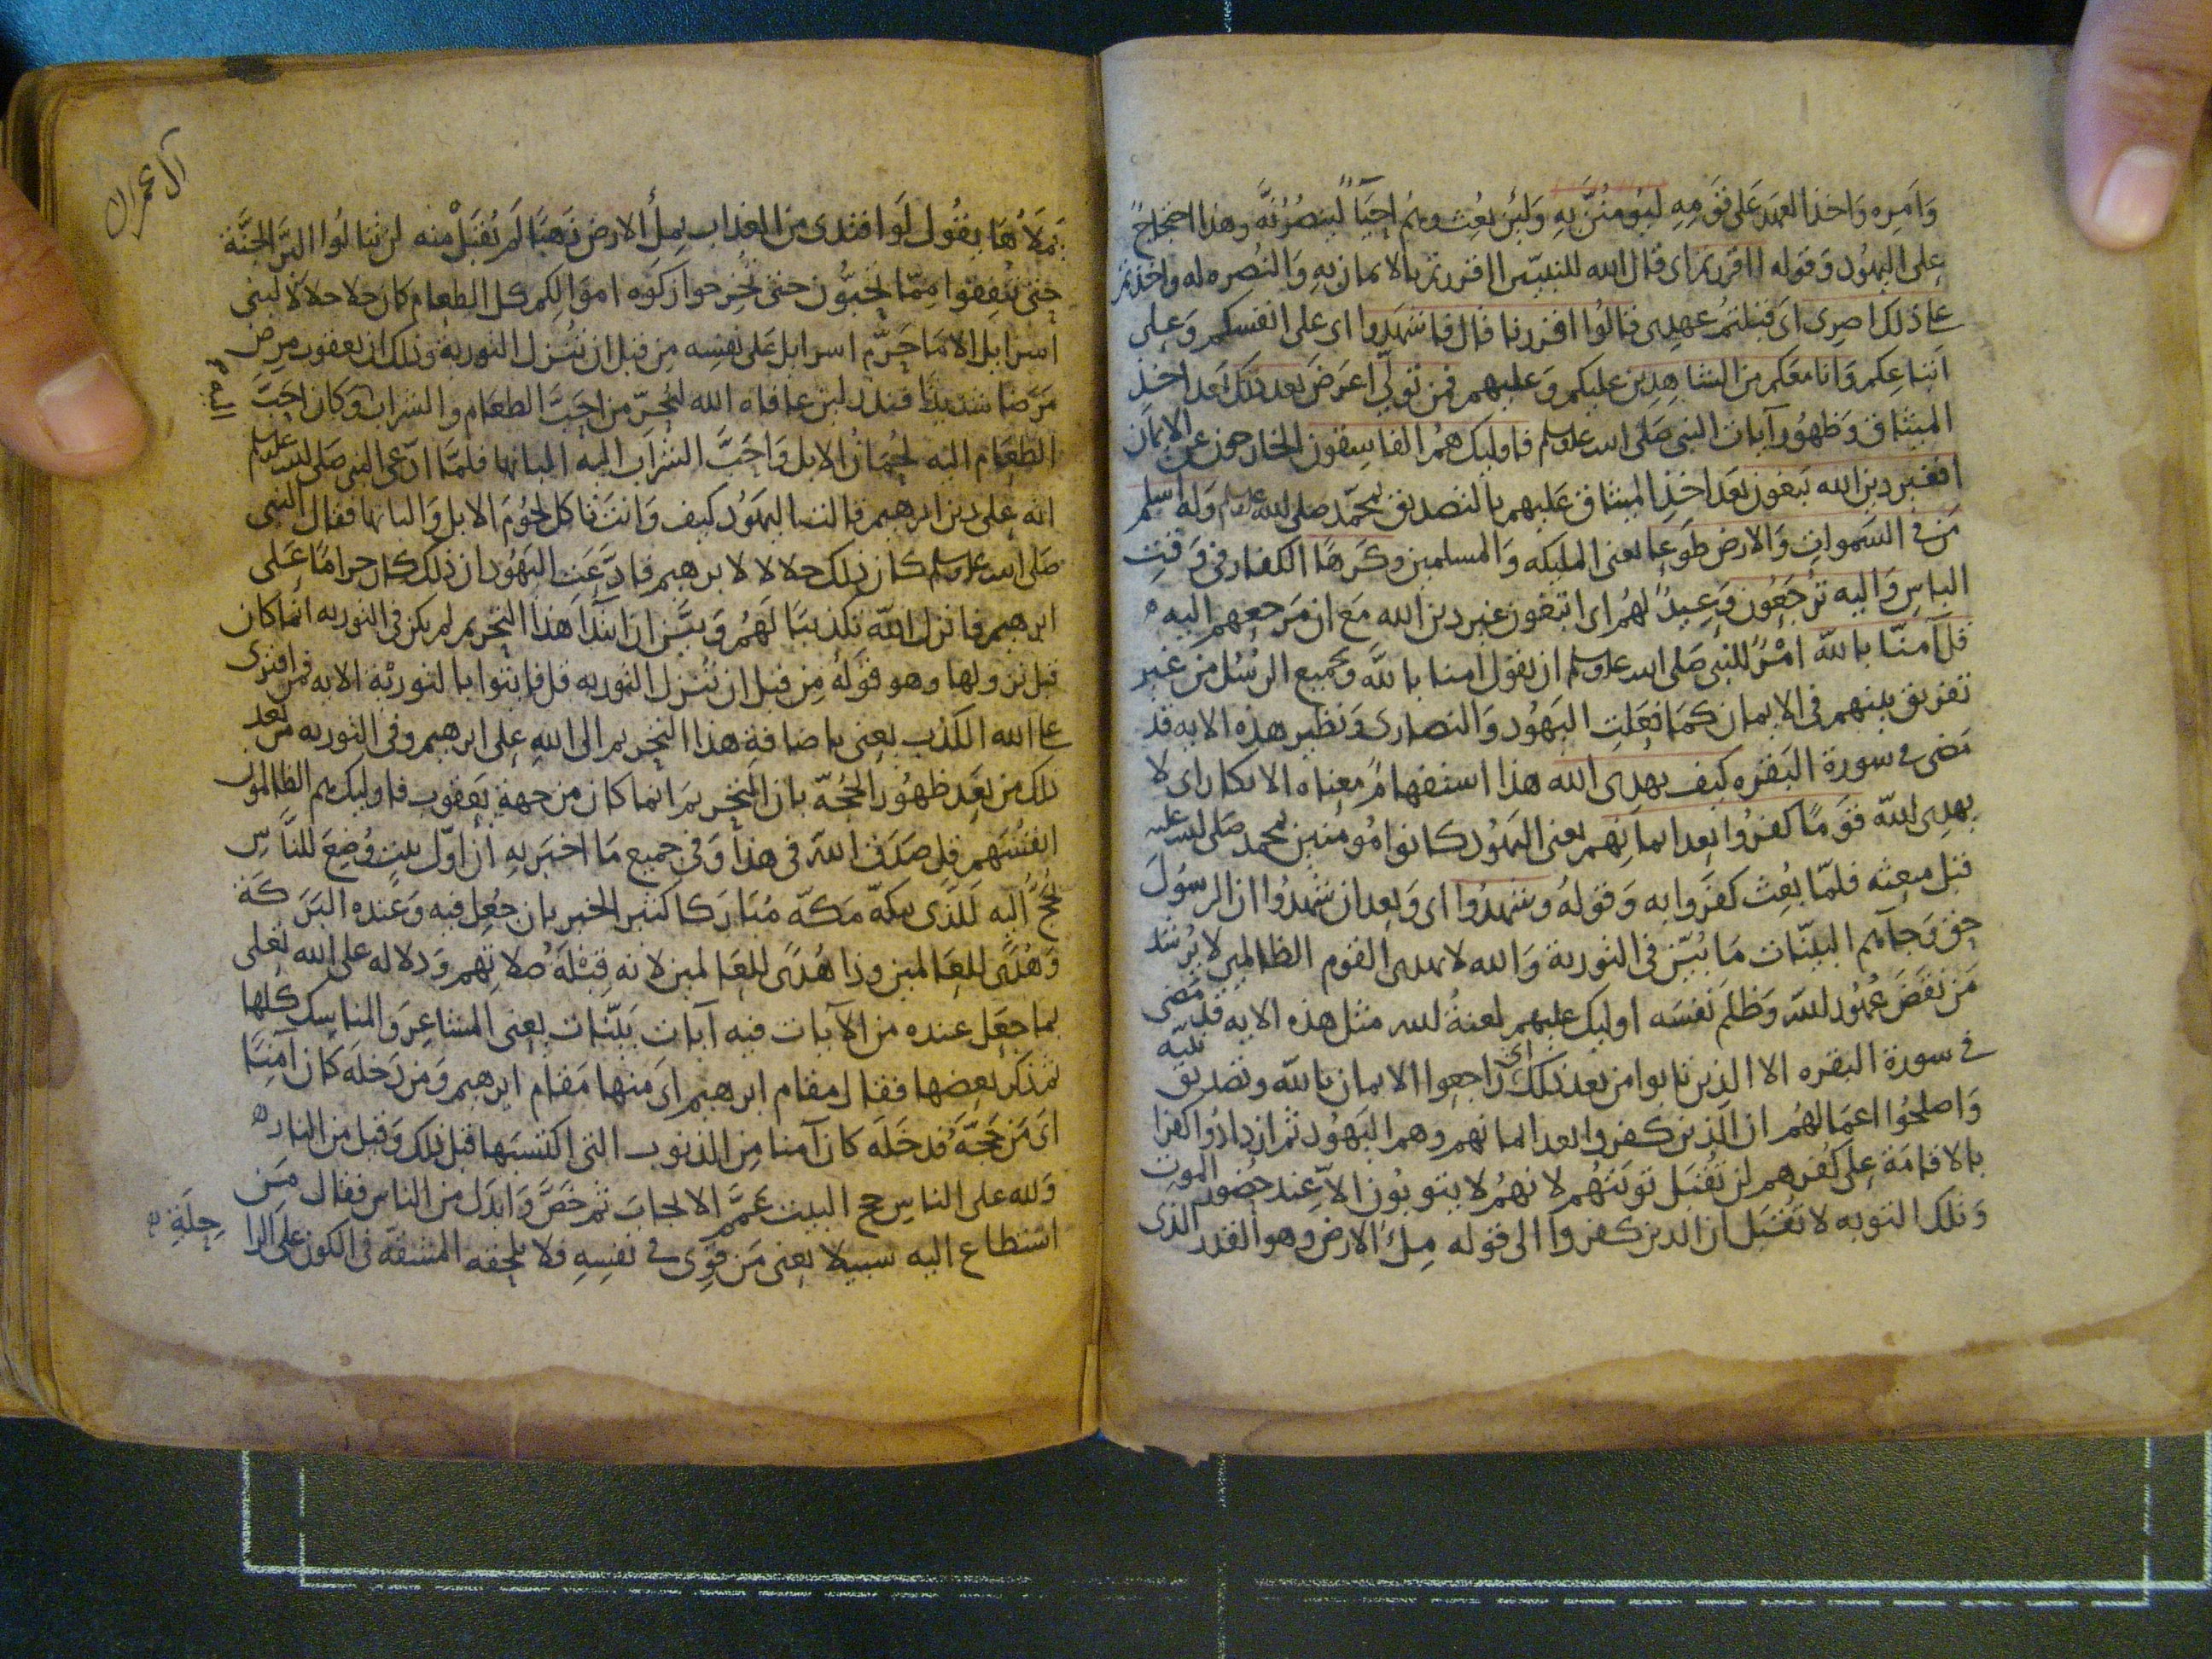 وَامره وَاخذ العهد عَلى قومِهِ ليُومننَّ بِهِ وَلين بُعِث وهمُ احيَآءٌ لينصُرُنَّه وهذا احتجاجٌ
على اليهُود وَقوله ااقررتم اى قال الله للنبيّين ااقررتم بالايمان بِهِ وَالنُصره له واخذتم
على ذلك اصرِى اى قبلتمُ عهدِى قالوُا اقررنا قال فاشهَدِوا اى على انفسكم وَعلى
اتباعِكم وَانا معَكم من الشاهِدِين عليكم وَعليهم فمن تولّى اعرَضَ بعد ذلك بَعد اخذِ
الميثاق وَظهُور آيات النبى صَلى الله عليه وسلم فاوليك همُ الفاسِقون الخارجون عن الايمَان
افغيردين الله تبغون بَعد اخذِ الميثاق عَليهم بالتصديق بمُحمّد صلى الله عليه وسلم وَله اسلم
مَن فى السَموات وَالارض طَوعا يعنى المليكه وَالمسلمين وكَرهًا الكفار فى وَقتِ
الباسِ وَاليه ترجَعُون وَعِيدٌ لهُم اى ايبغون غير دين الله مَع ان مَرجعِهم اليه ه
قل آمنّا بالله امْرٌ للنبى صَلى الله عليه وسلم ان يقول امنا بالله وَبجميع الرسُل من غير
تفريق بينهم فى الايمان كمَا فعَلتِ اليَهُود وَالنصارى وَنظير هذه الايه قد
مَضى فى سورة البَقره كيف يهدِى الله هذا استفهَامٌ معناه الانكار اى لا
يهدِى الله قومًا كفرُوا بعد ايمانِهم يعنى اليَهُود كانوا مُومنين بمحمد صَلى الله عليه
قبل مبعثِه فلمّا بُعِث كفرَوا بِه وَقولهُ وشهدُوا اى وَبعد ان شهدُوا ان الرسُولَ
حق وَجآهم البيّنات مَا بُيّن فى التورية وَالله لا يهدى القوم الظالمين لا يُرشد
مَن نقضَ عهُود الله وَظلم نفسَه اوليك عليهم لعنةُ الله مثل هذه الايه قد مَضى
فى سورة البقره الا الذين تابوا من بعد ذلك اى راجعوا الايمان بالله وتصديق نبيّه
وَاصلحُوا اعمَالهُم ان الذين كفروا بعد ايمانهم وهم اليَهُود ثم ازدادُوا كفرا
بالاقامَة على كفرهم لن تُقبَل توبَتهُم لانهمُ لا يتوبُون الاّ عِند حضُور الموت
وَتلك التوبه لا تُقبَل ان الذين كفروا الى قوله مِلءُ الارض وهو القدر الذى
آل عمران
يَملاُهَا يقُول لَو افتدى من العذاب بمِلءُ الارض ذَهبًا لَم يُقبَلْ منه لن تنالوُا البرّ الجنَّة
حتى تنفِقوا مِمّا تحبُّون حتى تُخرِجوا زكوه اموَالِكم كل الطعام كان حلا حلالا لبنى
اسرايل الا مَا حَرَّم اسرايل عَلى نفسِه مِن قبل ان تنُزل التورية وذلك ان يعقوب مرِض
مَرَضا شديدًا فنذر لين عافاه الله ليُحرّمن احَبَّ الطعَام والشراب وكان احَبَّ
الطعِام اليه لحُمَان الابل وَاحَبَّ الشرَاب اليه البانها فلمَّا ادّعى النبى صَلى الله عليه وسلم
انه عِلى دين ابرهيم قالت اليهَود كيف وَانت تاكل لحوُمَ الابل وَالبانها فقال النبى
صَلى الله عليه وسلم كان ذلك حلالا لابرهيم فادَّعَتِ اليَهُود ان ذلك كان حرامًا عَلى
ابرهيم فانزل الله تكذيبًا لَهُم وَبيَّن ان ابتدآ هذا التحريم لم يكن فى التوريه انما كان
قبل نزولها وهو قَولهُ مِن قبل ان تنُزل التوريه قل فاتوا بالتوريْة الايه فمن افترى
على الله الكذب يعنى باضافةِ هذا التحريم الى اللهِ على ابرهيم وفى التوريه من بعد
ذلك من بَعد ظهُور الحُجّة بان التحريمَ انما كان من جهةِ يَعقوب فاوليك هم الظالمون
انفُسَهم قل صَدَق اللهُ فى هذا وَفى جميع مَا اخبرَ بِهِ ان اوّل بيتٍ وُضِعَ للنَّاسِ
يُحجُّ اليه لَلّذى ببكة مَكّه مُبَارَكا كثير الخير بان جُعِل فيه وَعنده البَرَكَة
وَهُدًى للعَالمين وذا هُدًى للعَالمين لانه قِبْلَة صَلاتِهم وَدلاله على الله تعلى
بما جعَل عنده من الآيات فيه آيات بَيّنات يعنى المشاعِرَ وَالمناسِك كلها
ثم ذكر بعضها فقال مقام ابرهيم اى منها مَقام ابرهيم وَمن دَخله كان آمنِا
اى مَن حَجَّهُ فدخَلَه كان آمنا مِن الذنوب التى اكتسَبَها قبل ذلك وَقيل من النار ه
وَلله على الناسِ حج البيت عَمَّم الايجابَ ثم خَصَّ وَابدَل من الناس فقال مَنِ
استطاع اليه سبيلا يعنى مَن قوِى فى نفسِه فلا يلحقه المشقّه فى الكون على الرا حِلَةِ ه